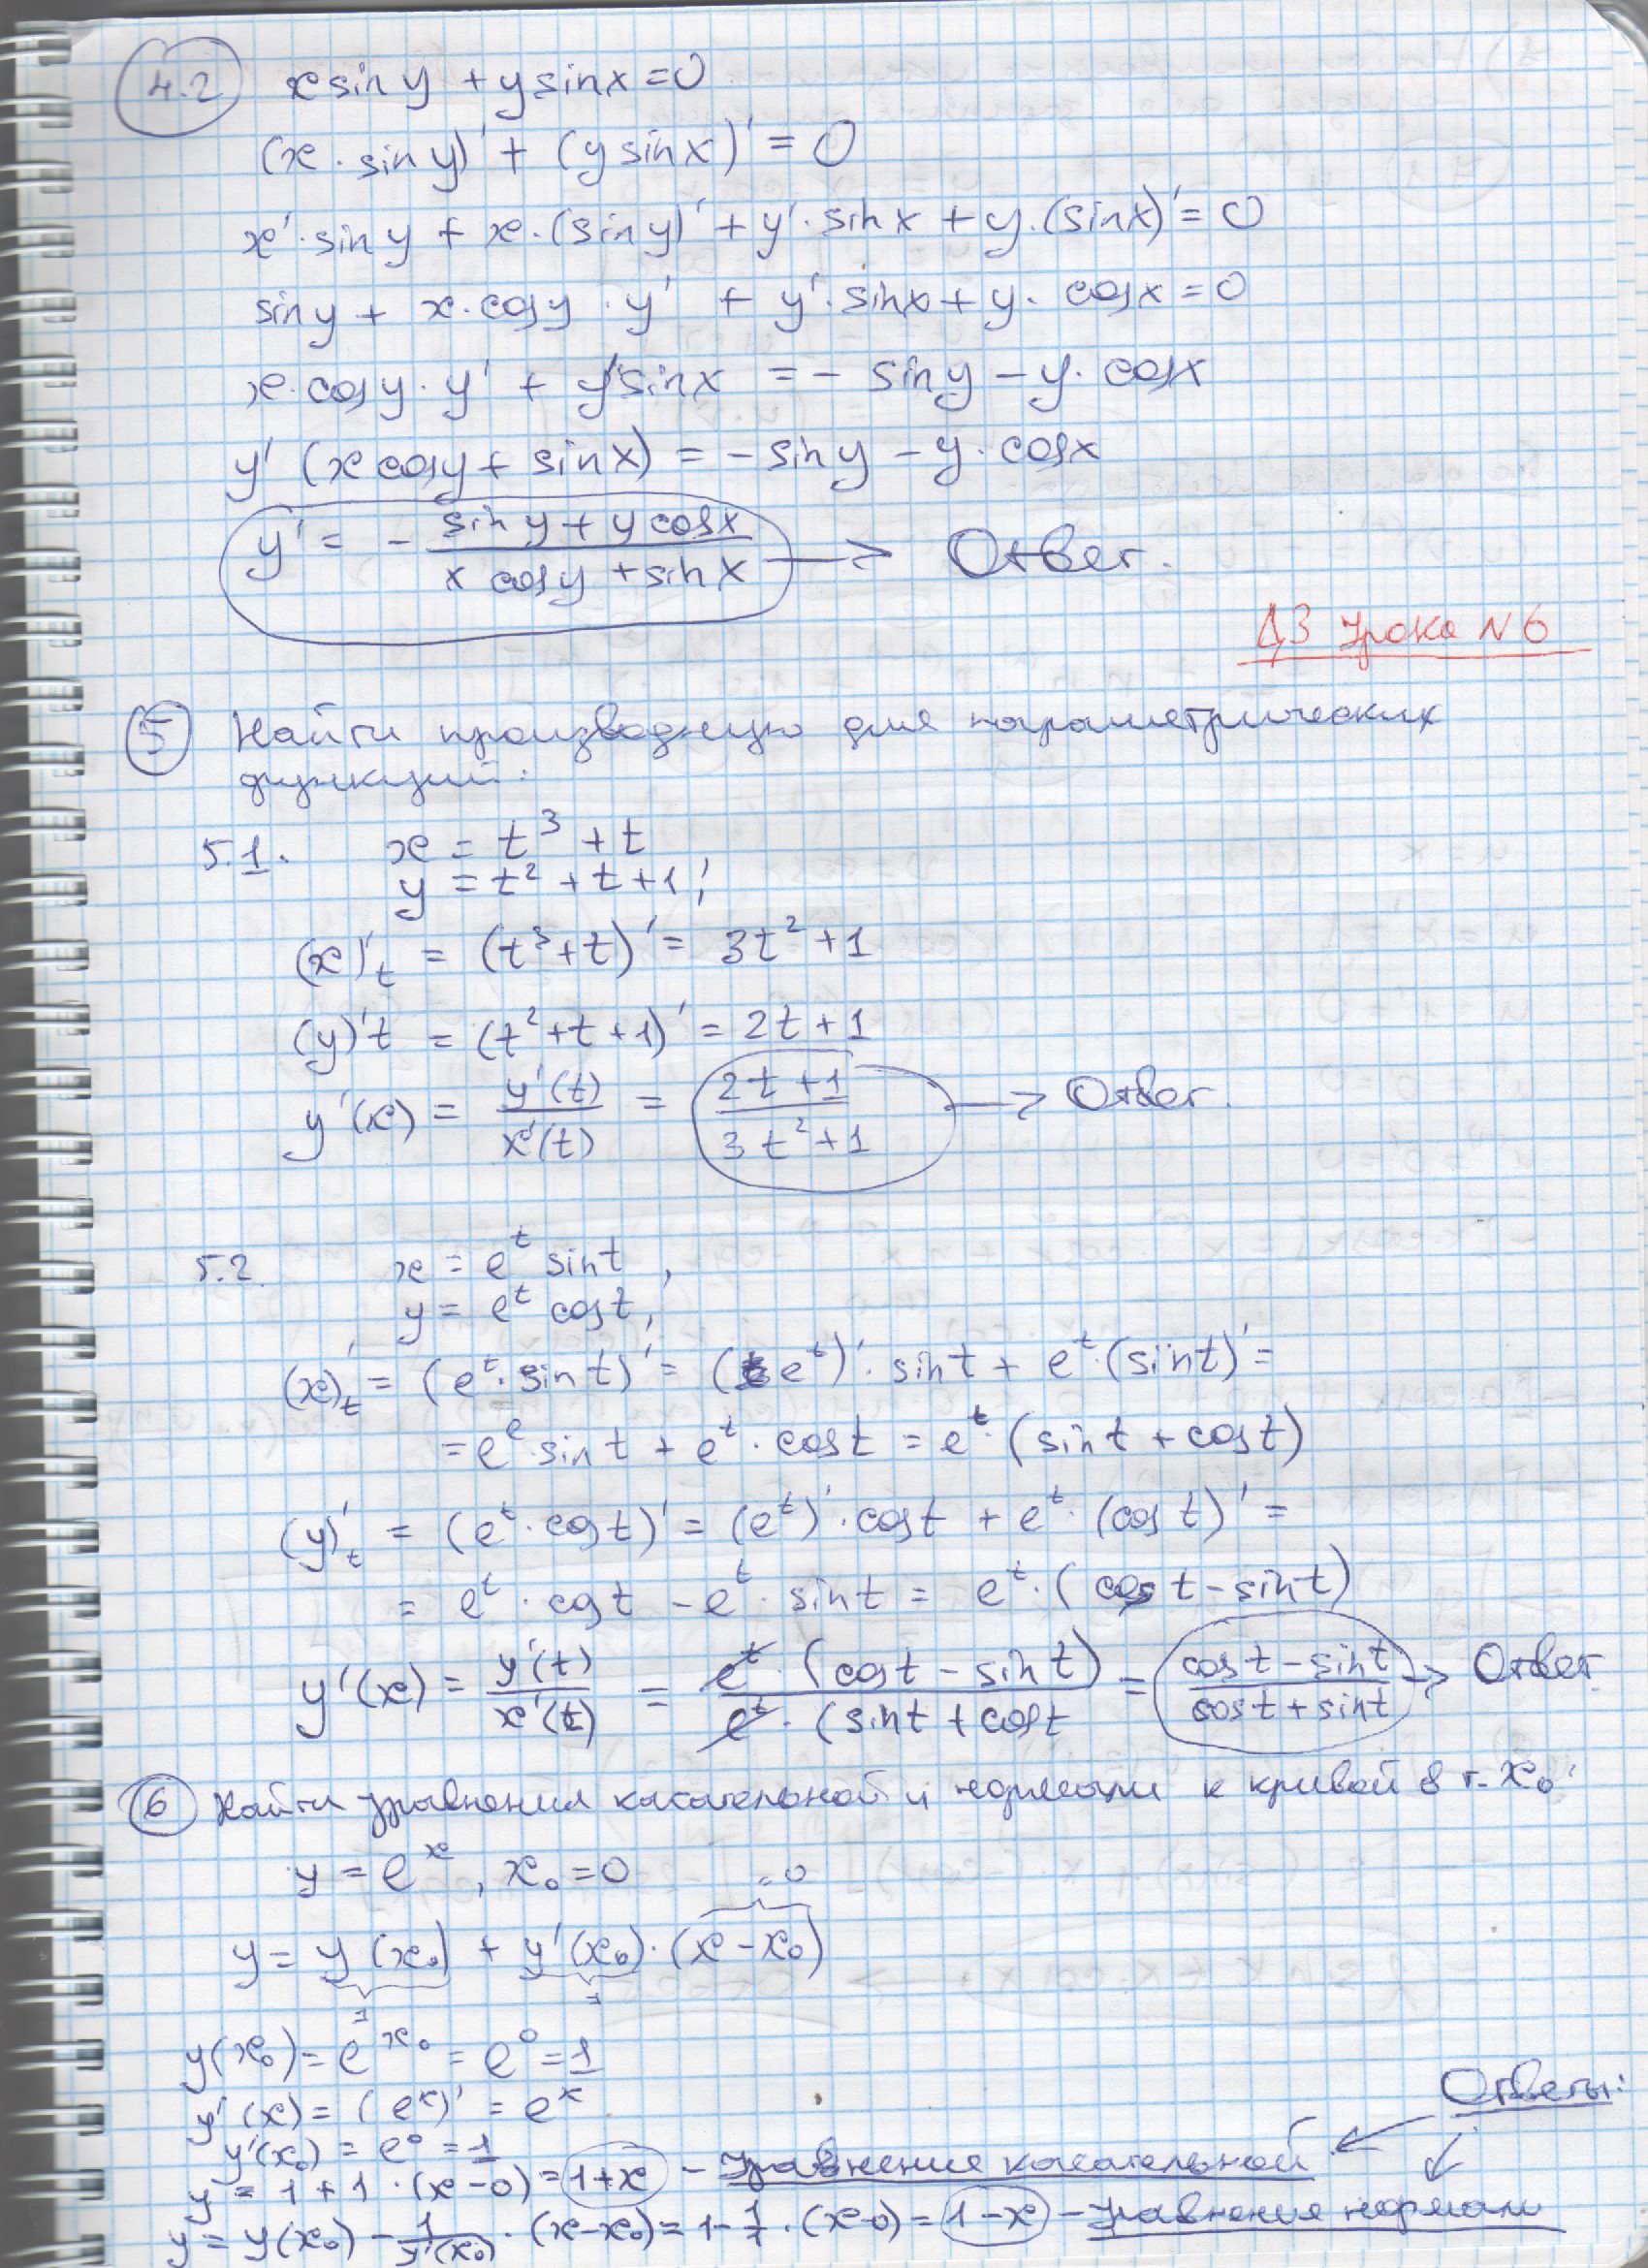 4.2 x sin y + y sin x = 0
(x · sin y)' + (y sin x)' = 0
x' · sin y + x · (sin y)' + y' · sin x + y · (sin x)' = 0
sin y + x · cos y · y' + y' · sin x + y · cos x = 0
x · cos y · y' + y' sin x = - sin y - y · cos x
y' (x cos y + sin x) = - sin y - y · cos x
y' = - (sin y + y cos x)/(x cos y + sin x) → Ответ.
ДЗ Урока N6
5 Найти производную для параметрических
функций:
5.1. x = t³ + t
y = t² + t + 1;
(x)'t = (t³ + t)' = 3t² + 1
(y)'t = (t² + t + 1)' = 2t + 1
y'(x) = y'(t)/x'(t) = (2t + 1)/(3t² + 1) → Ответ.
5.2. x = e^t sin t,
y = e^t cos t,
(x)'t = (e^t · sin t)' = (e^t)' · sin t + e^t · (sin t)' =
= e^e · sin t + e^t · cos t = e^t · (sin t + cos t)
(y)'t = (e^t · cos t)' = (e^t)' · cos t + e^t · (cos t)' =
= e^t · cos t - e^t · sin t = e^t · (cos t - sin t)
y'(x) = y'(t)/x'(t) = e^t · (cos t - sin t)/e^t · (sin t + cos t = (cos t - sin t)/(cos t + sin t) → Ответ
6 Найти уравнения касательной и нормали к кривой в т. x₀:
y = e^x, x₀ = 0 = 0
y = y(x₀) + y'(x₀) · (x - x₀)
= =
y(x₀) = e^x₀ = e^0 = 1
Ответы:
y'(x) = (e^x)' = e^x
y'(x₀) = e^0 = 1
y = 1 + 1 · (x - 0) = 1 + x - Уравнение касательной
y = y(x₀) - 1/y'(x₀) · (x - x₀) = 1 - 1/1 · (x - 0) = 1 - x - Уравнение нормали